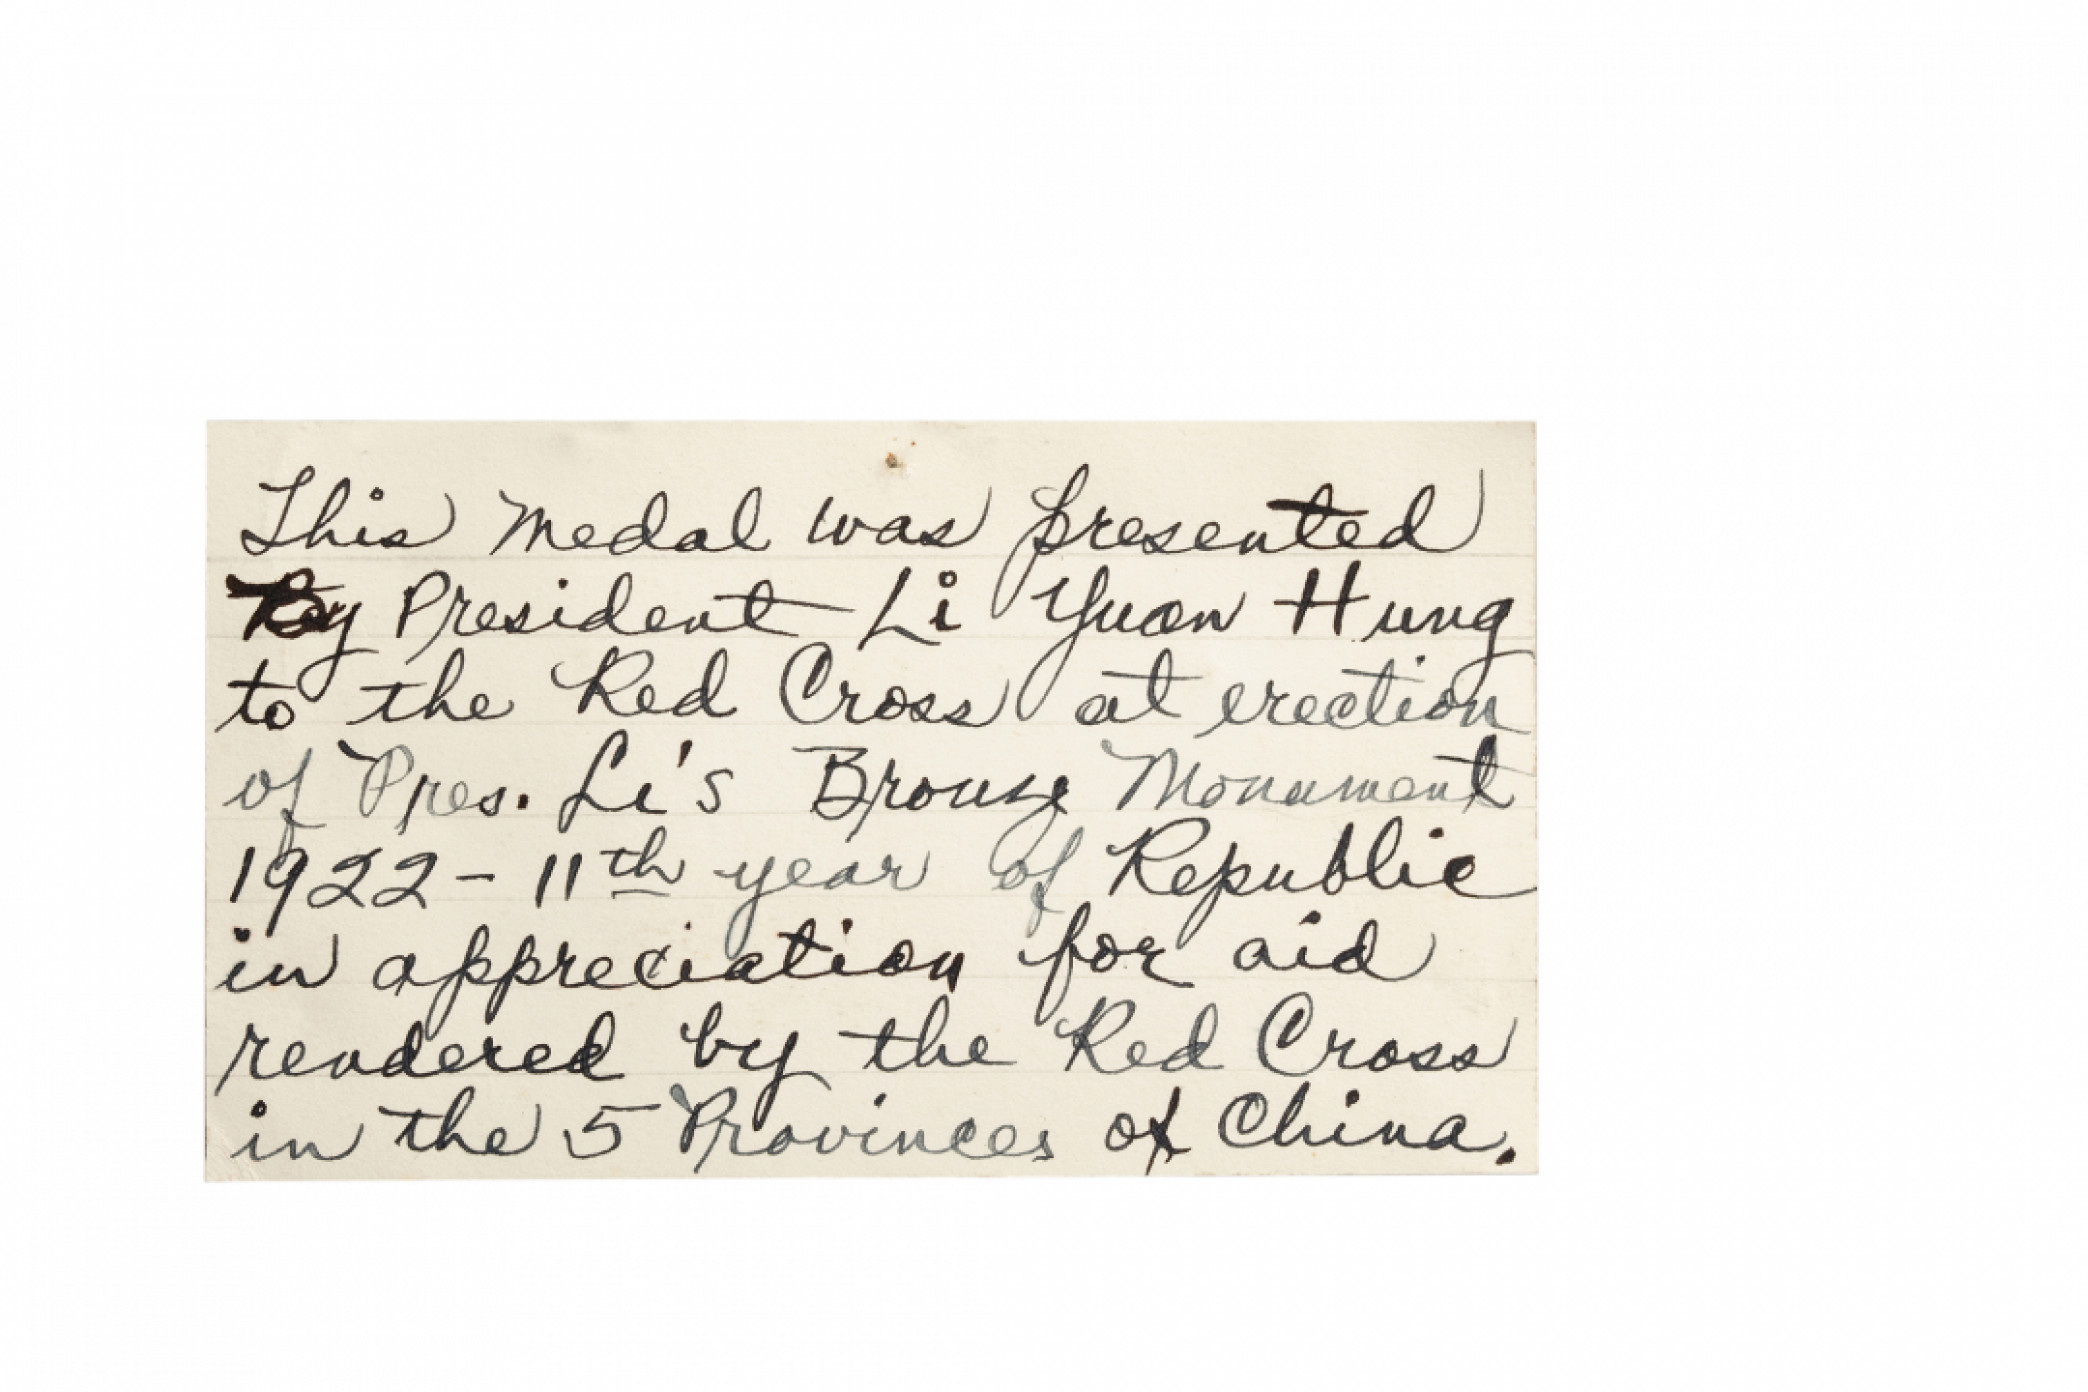 This medal was presented
By President Li Yuan Hung
to the Red Cross at erection
of Pres. Li's Bronze Monument
1922 - 11th year of Republic
in appreciation for aid
rendered by the Red Cross
in the 5 Provinces of China.